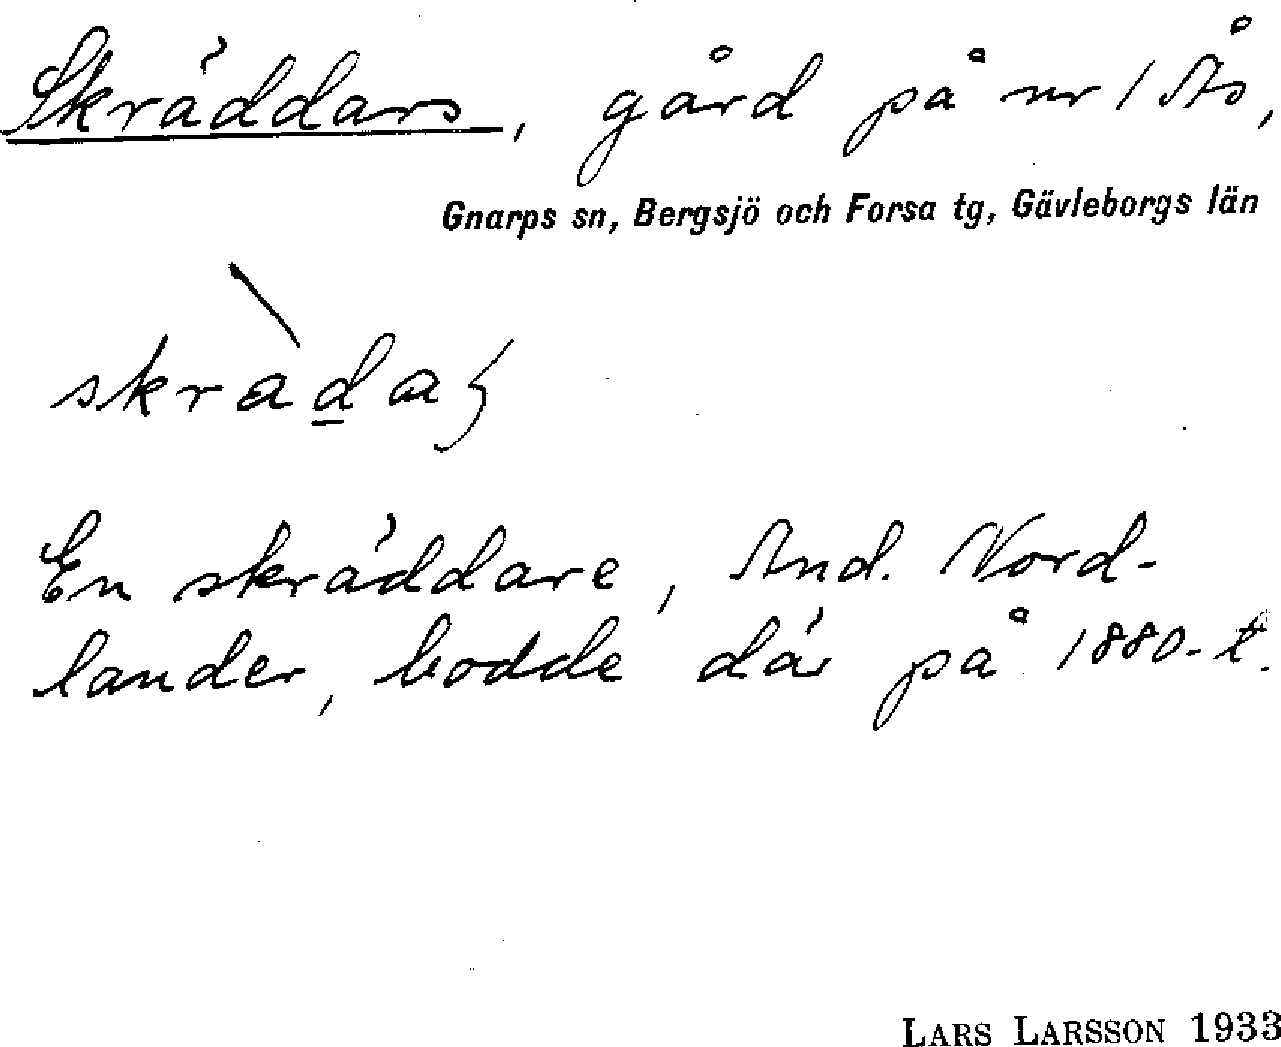 Skräddars, gård på nr 1 Ås,
Gnarps sn, Bergsjö och Forsa tg, Gävleborgs län
En skräddare, And. Nord-
lander, bodde där på 1880-t.
LARS LARSSON 1933